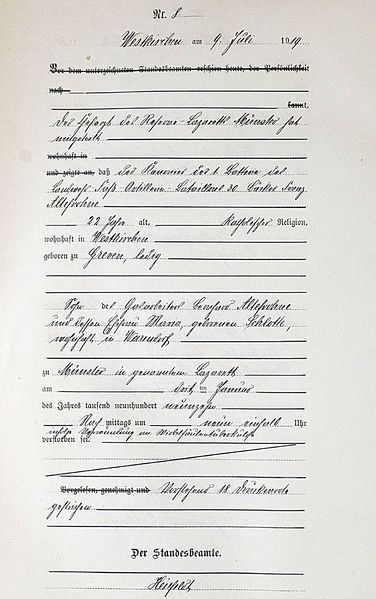 Nr. 8
Westkirchen am 9. Juli 1919
Vor dem unterzeichneten Standesbeamten erschien heute, der Persönlichkeit
nach
kannt,
Der Chefarzt des Reserve-Lazaretts Münster hat
mitgeteilt
wohnhaft in
und zeigte an, daß der Kanonier der 1. Batterie des
Landwehr Fuß Artillerie-Bataillons 20. Bäcker Franz
Alteforhne
22 Jahre alt, katholischer Religion,
wohnhaft in Westkirchen
geboren zu Greven, ledig
Sohn des Bernhard
und dessen Ehefrau Maria, geborenen Schlotte,
wohnhaft in Warendorf
zu Münster in genanntem Lazarett
am ten Januar
des Jahres tausend neunhundert neunzehn
Nach mittags um neun einhalb Uhr
infolge Verwundung an
verstorben sei.
Vorgelesen, genehmigt und Vorstehend 18 Druckworte
gestrichen
Der Standesbeamte.